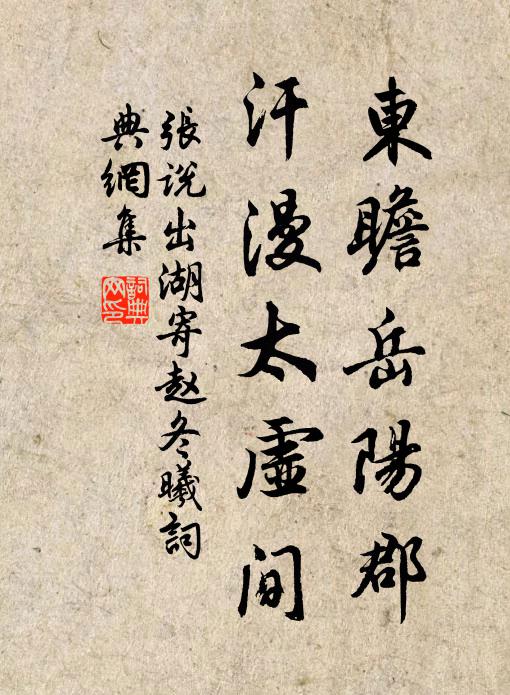 東瞻岳陽郡
汗漫太虛間
張說出湖寄趙冬曦詞
典網集
詞典
网印